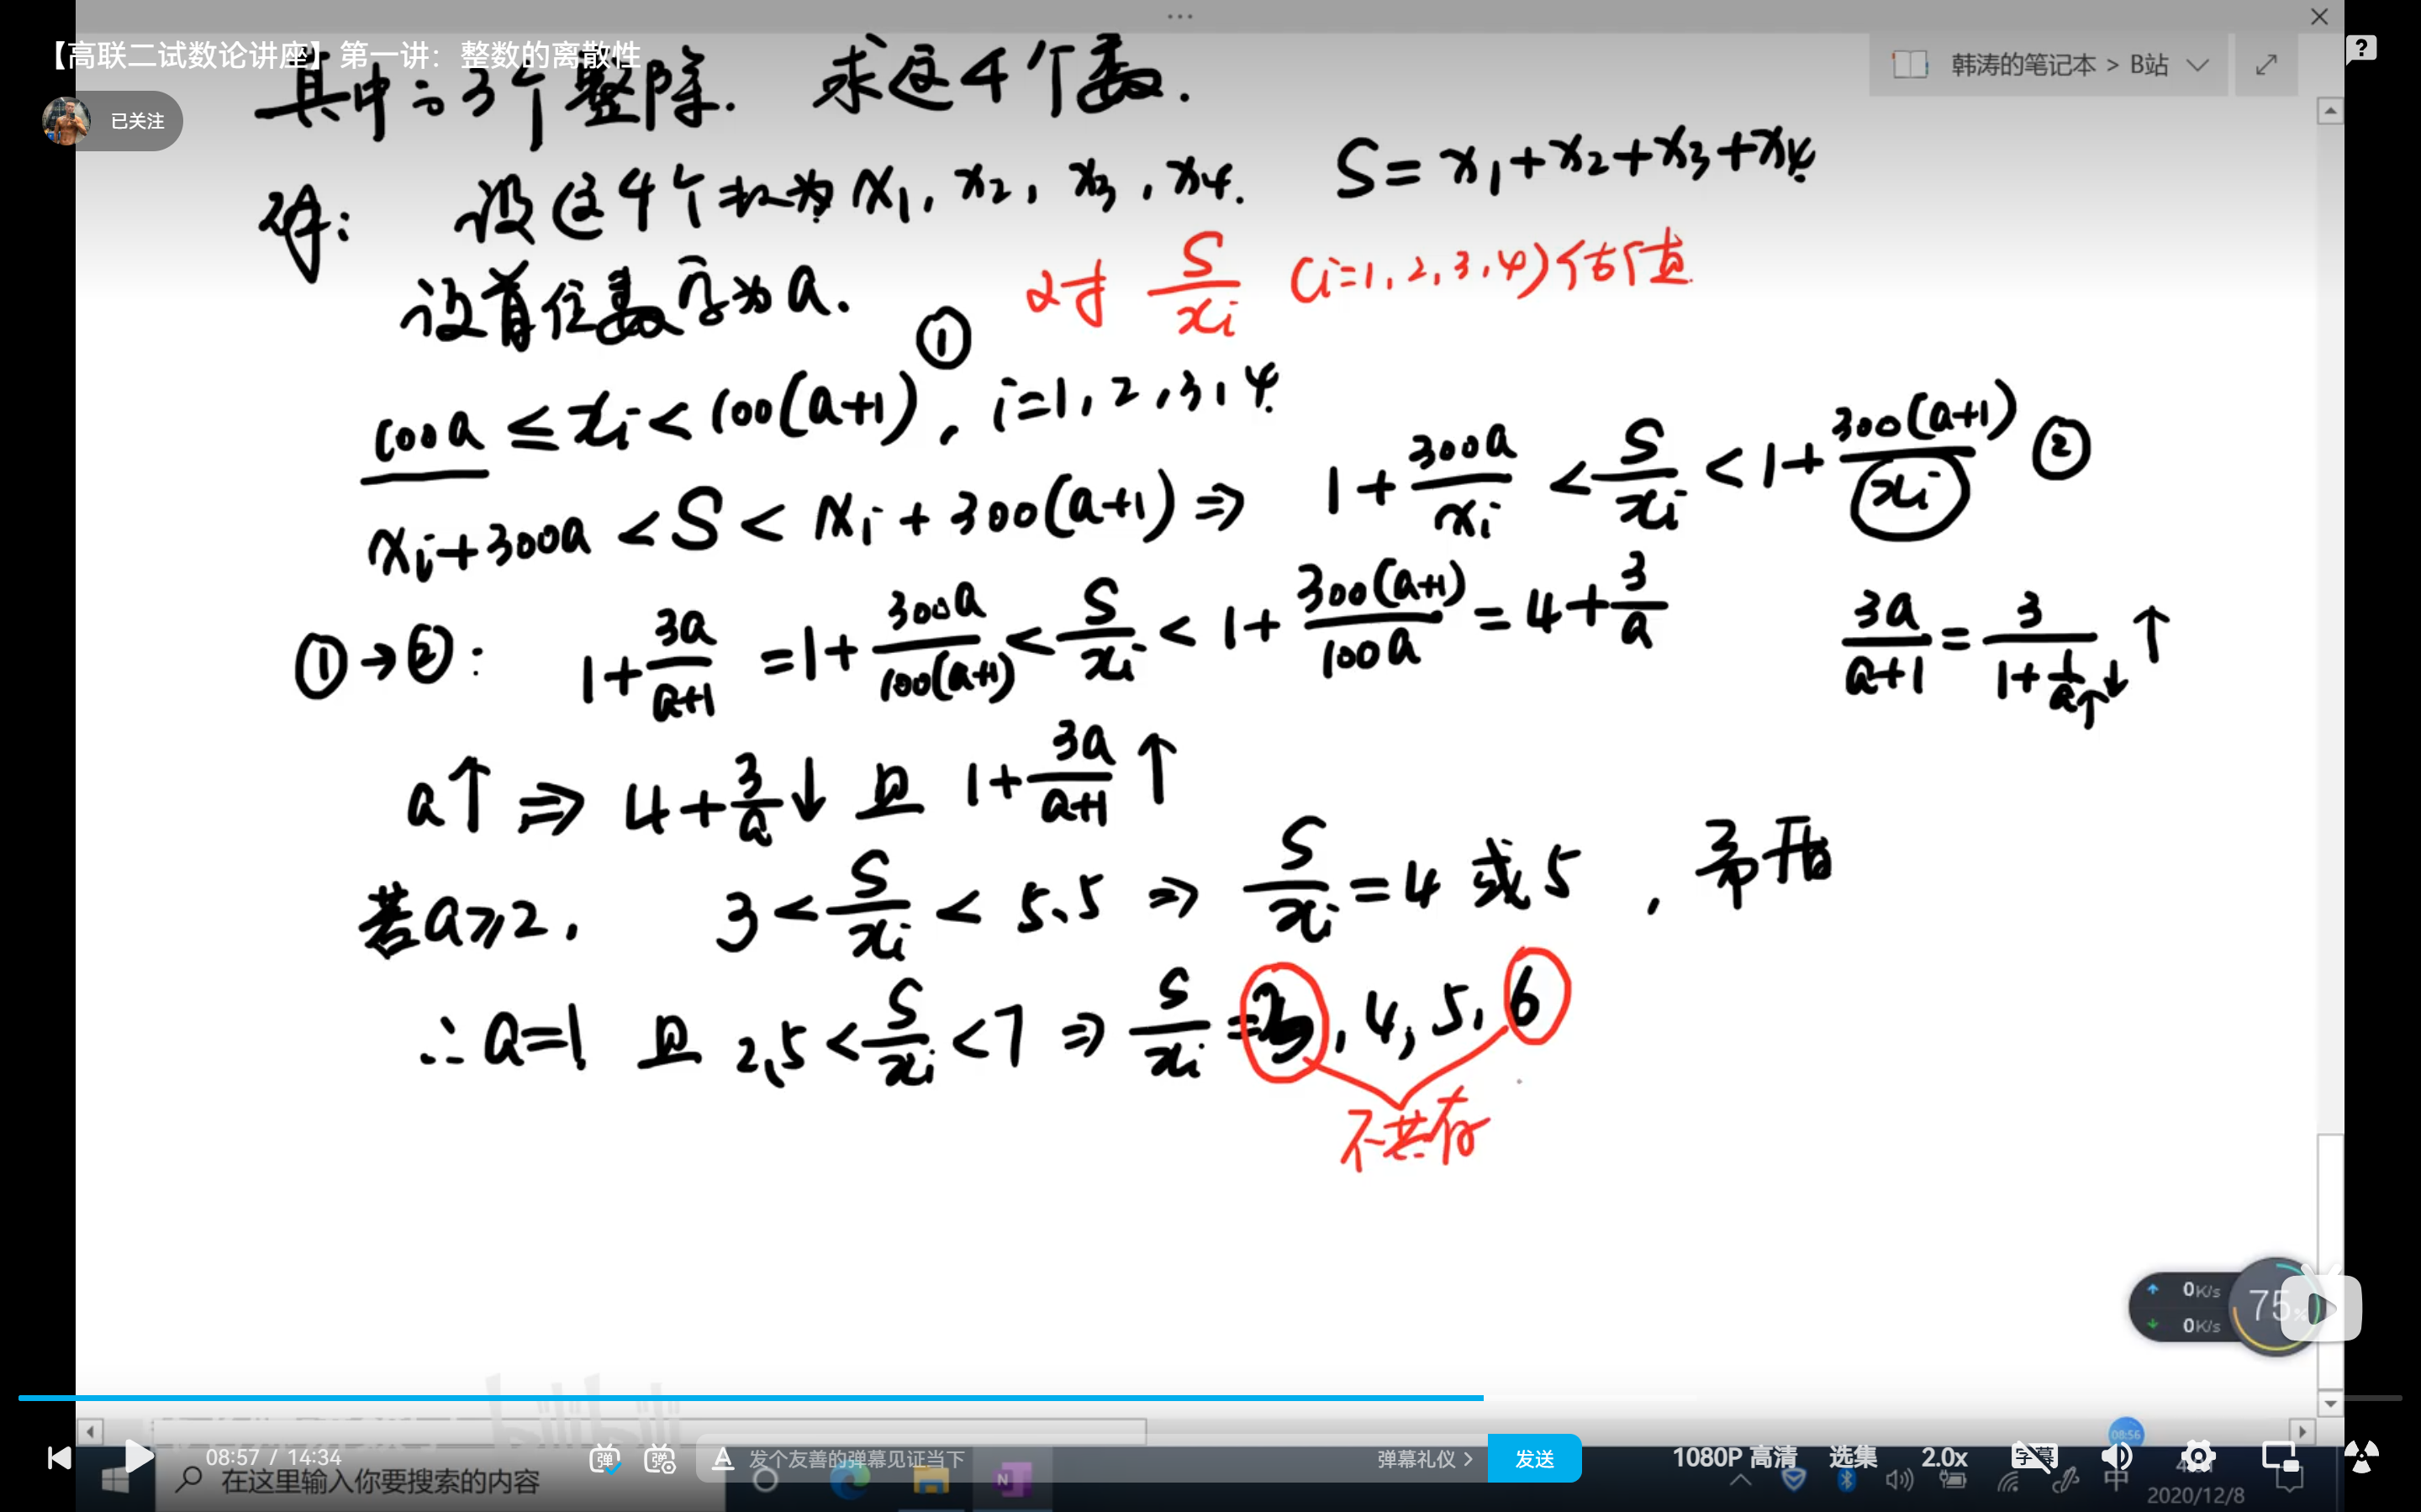 【高联二试数论讲座】第一讲：整数的离散性
韩涛的笔记本 > B站
已关注
其中的3个整除. 求这4个数.
解: 设这4个数为 x₁, x₂, x₃, x₄. S = x₁+x₂+x₃+x₄.
设首位数字为 a. 对 S/xᵢ (i=1,2,3,4) 估值
100a ≤ xᵢ < 100(a+1) ①, i=1,2,3,4.
xᵢ+300a < S < xᵢ+300(a+1) ⇒ 1+300a/xᵢ < S/xᵢ < 1+300(a+1)/xᵢ ②
①→②: 1+3a/(a+1) = 1+300a/(100(a+1)) < S/xᵢ < 1+300(a+1)/(100a) = 4+3/a
3a/(a+1) = 3/(1+1/a↑)↓ ↑
a↑ ⇒ 4+3/a↓ 且 1+3a/(a+1)↑
若 a≥2, 3 < S/xᵢ < 5.5 ⇒ S/xᵢ = 4 或 5, 矛盾
∴ a=1 且 2.5 < S/xᵢ < 7 ⇒ S/xᵢ = 3, 4, 5, 6
不共存
0K/s
0K/s
75%
08:56
08:57 / 14:34
弹
弹
A
发个友善的弹幕见证当下
弹幕礼仪 >
发送
1080P 高清
选集
2.0x
字幕
在这里输入你要搜索的内容
N
中
2020/12/8